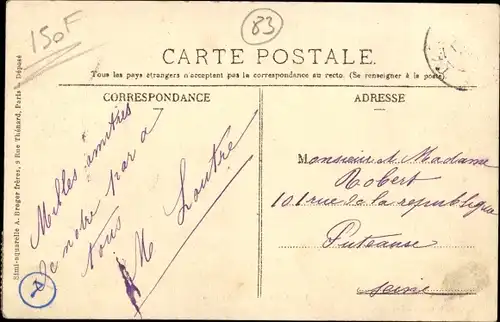 150F
83
CARTE POSTALE.
Tous les pays étrangers n'acceptent pas la correspondance au recto. (Se renseigner à la poste).
CORRESPONDANCE
ADRESSE
Simi-aquarelle A. Breger frères, 9 Rue Thénard, Paris Déposé
Milles amitiés
de notre par a
tous
M
Monsieur et Madame
Robert
101 rue de la republique
Puteause
Seine